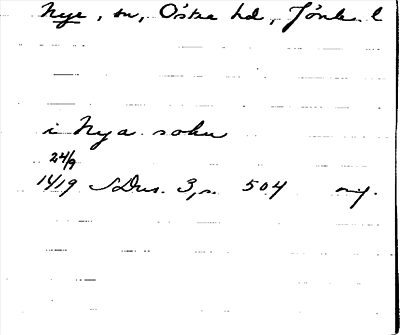 Nye, sn, Östra hd, Jönk. l
i Nya sokn
24/9
1419 SDns. 3, s. 504